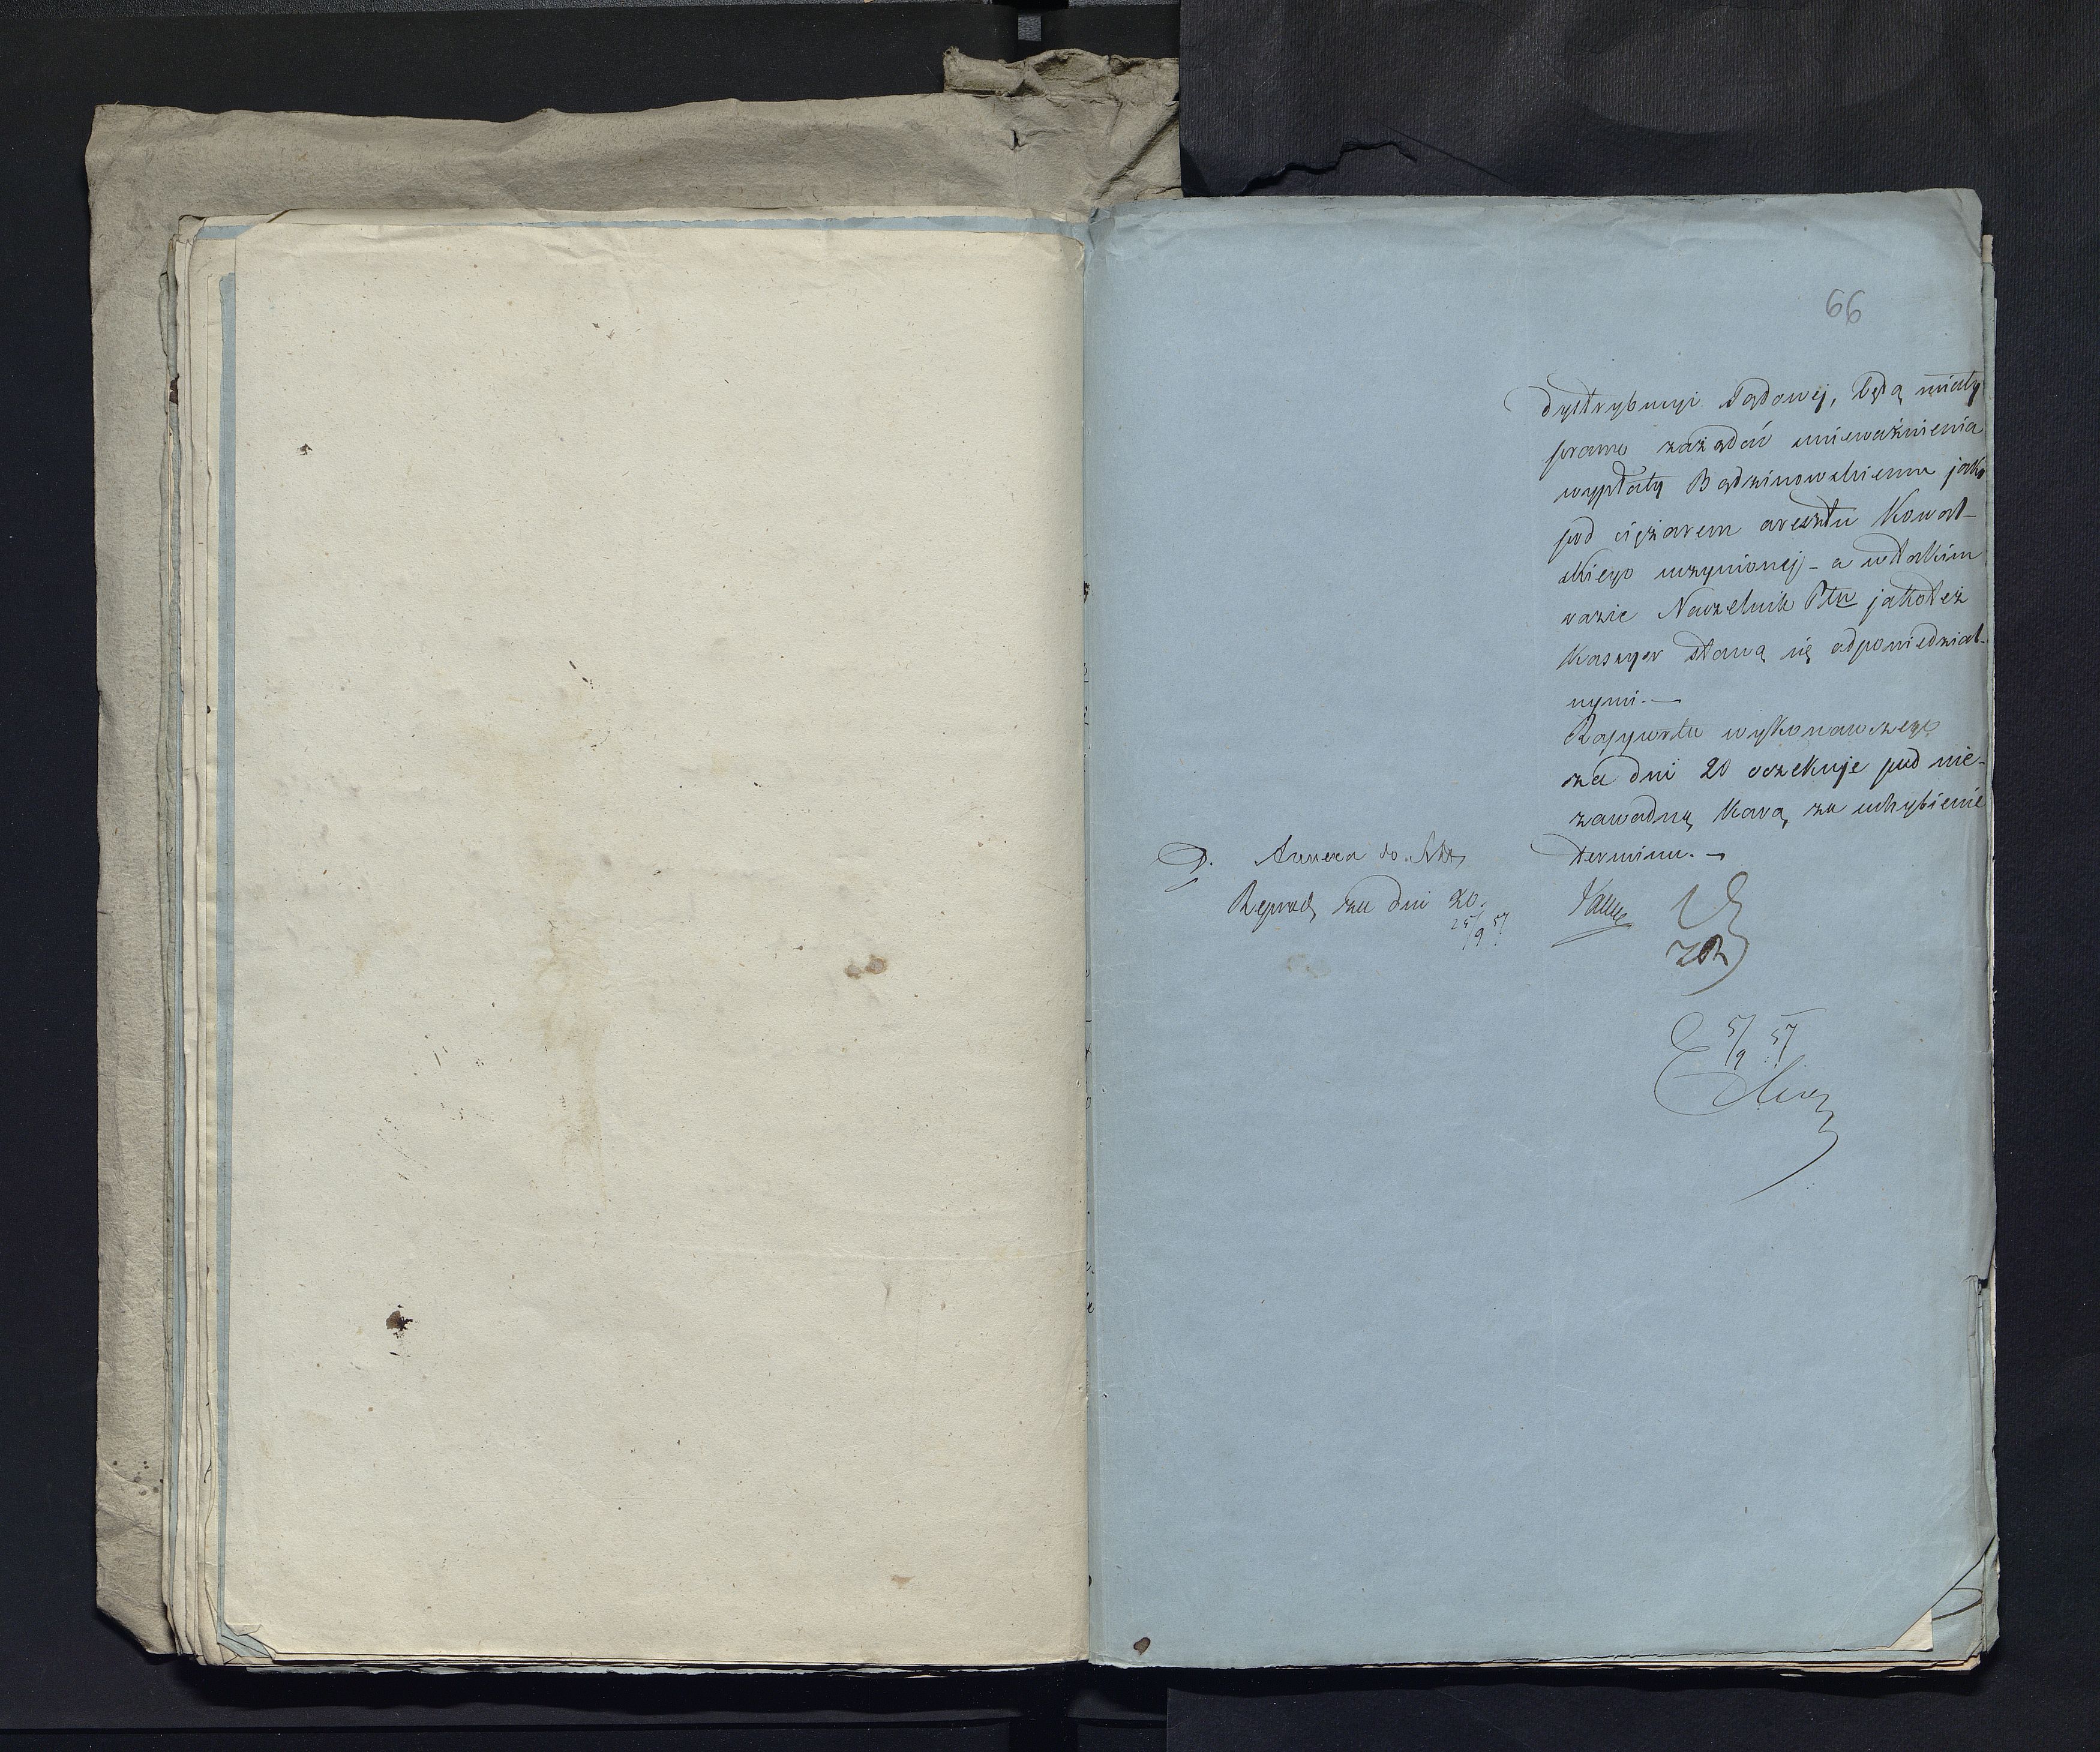 66
dystrybucyi Sądowej, będą miały
prawo zażądać unieważnienia
wypłaty Bądzinowskiemu jako
pod ciężarem aresztu Kowal-
skiego uczynionej - a w takim
razie Naczelnik Ptu jakoteż
Kassyer staną się odpowiedzial-
nymi. —
Rapportu wykonawczego
za dni 20 oczekuje pod nie-
zawodną karą za uchybienie
terminu. —
D. Annexa do Akt
Reprod, za dni 20.
25/9 57
5/9 57